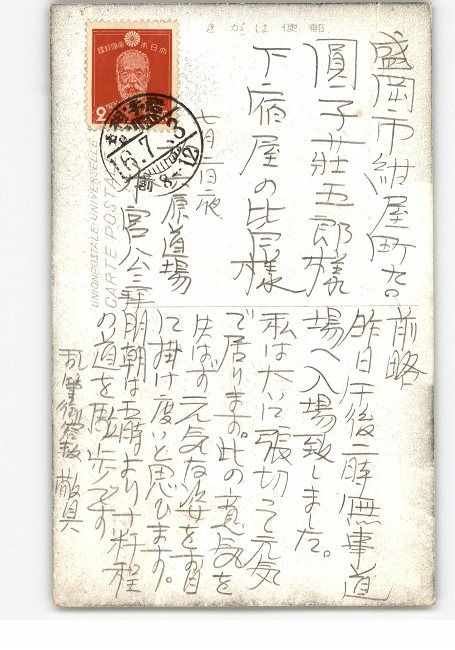 郵便はがき
盛岡市紺屋町九の
圓子莊五郎様
下宿屋の比
様
七月二日夜
原道場
宮公三
前略
昨日午後二時無事道
場へ入場致しました。
私は大いに張切って元気
で居ります。此の意気を
失はず元気な姿をお目
に掛け度いと思ひます。
明朝は五時より十粁程
の道を駈歩です
敬具
大日本帝國郵便
2
7.3
前8-12
UNION POSTALE UNIVERSELLE
CARTE POSTALE